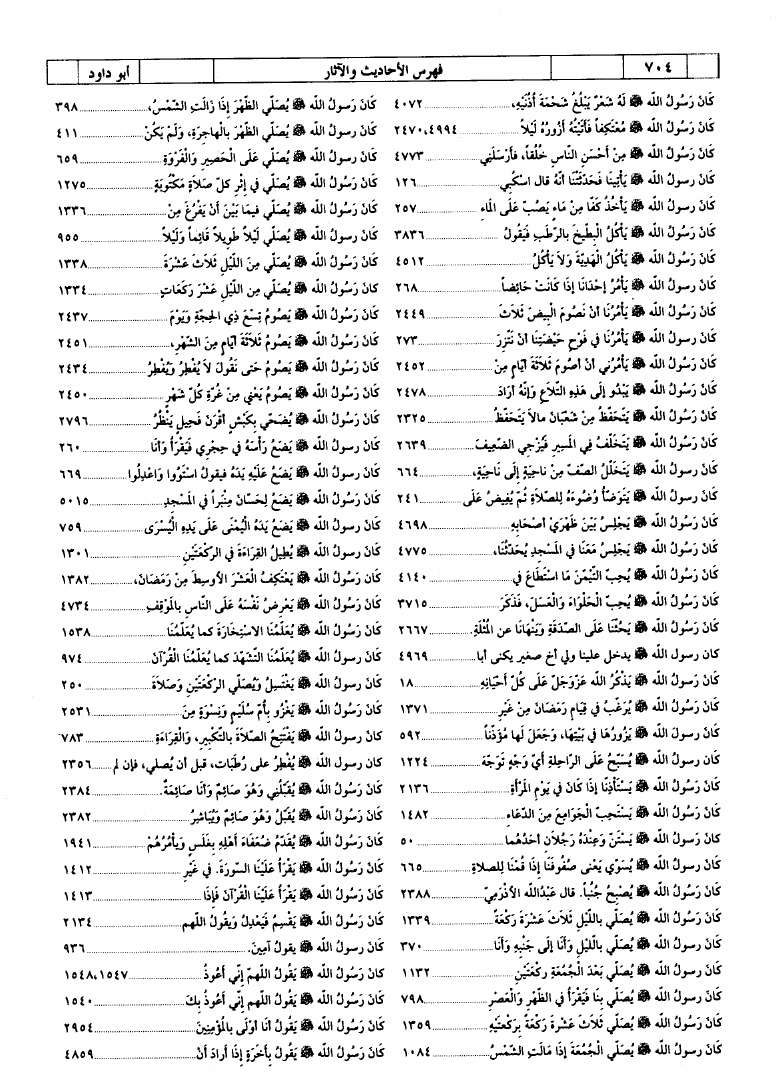 ٧٠٤
فهرس الأحاديث والآثار
أبو داود
كَانَ رَسُولُ الله ﷺ لَهُ شَعْرٌ يَبْلُغُ شَحْمَةَ أُذُنَيْهِ، ٤٠٧٢
كَانَ رَسُولُ الله ﷺ مُعْتَكِفاً فَأَتَيْتُهُ أَزُورُهُ لَيْلاً ٢٤٧٠،٤٩٩٤
كَانَ رَسُولُ الله ﷺ مِنْ أَحْسَنِ النَّاسِ خُلُقاً، فَأَرْسَلَنِي ٤٧٧٣
كَانَ رسولُ الله ﷺ يَأْتِينَا فَحَدَّثَتْنَا أَنَّهُ قال اسْكُبِي ١٢٦
كَانَ رَسُولُ الله ﷺ يَأْخُذُ كَفّا مِنْ مَاءٍ يَصُبّ عَلَى المَاءِ ٢٥٧
كَانَ رَسُولُ الله ﷺ يَأْكُلُ الْبِطِّيخَ بالرُّطَبِ فَيَقُولُ ٣٨٣٦
كَانَ رَسُولُ الله ﷺ يَأْكُلُ الْهَدِيَّةَ وَلاَ يَأْكُلُ ٤٥١٢
كَانَ رَسُولُ الله ﷺ يَأْمُرُ إِحْدَانَا إذَا كَانَتْ حَائِضاً ٢٦٨
كَانَ رَسُولُ الله ﷺ يَأْمُرُنَا أنْ نَصُومَ الْبِيضَ ثَلاَثَ ٢٤٤٩
كَانَ رَسُولُ الله ﷺ يَأْمُرُنَا في فَوْحِ حَيْضَتِنَا أنْ نَتَّزِرَ ٢٧٣
كَانَ رَسُولُ الله ﷺ يَأْمُرُنِي أنْ أصُومَ ثَلاَثَةَ أيَّامٍ مِنْ ٢٤٥٢
كَانَ رَسُولُ الله ﷺ يَبْدُو إلَى هَذِهِ التِّلاَعِ وَإنَّهُ أرَادَ ٢٤٧٨
كَانَ رَسُولُ الله ﷺ يَتَحَفَّظُ مِنْ شَعْبَانَ مالاَ يَتَحَفَّظُ ٢٣٢٥
كَانَ رَسُولُ الله ﷺ يَتَخَلَّفُ فِي المَسِيرِ فَيُزْجِي الضَّعِيفَ ٢٦٣٩
كَانَ رَسُولُ الله ﷺ يَتَخَلَّلُ الصَّفَّ مِنْ نَاحِيَةٍ إلَى نَاحِيَةٍ، ٦٦٤
كَانَ رَسُولُ الله ﷺ يَتَوَضَّأُ وُضُوءَهُ لِلصَّلاةِ ثُمَّ يُفِيضُ عَلَى ٢٤١
كَانَ رَسُولُ الله ﷺ يَجْلِسُ بَيْنَ ظَهْرَيْ أصْحَابِهِ ٤٦٩٨
كَانَ رَسُولُ الله ﷺ يَجْلِسُ مَعَنَا في المَسْجِدِ يُحَدّثُنَا، ٤٧٧٥
كَانَ رَسُولُ الله ﷺ يُحِبّ التَّيَمُّنَ مَا اسْتَطَاعَ في ٤١٤٠
كَانَ رَسُولُ الله ﷺ يُحِبّ الْحَلْوَاءَ وَالْعَسَلَ، فَذَكَرَ ٣٧١٥
كَانَ رَسُولُ الله ﷺ يَحُثّنَا عَلَى الصّدَقَةِ وَيَنْهَانَا عن المُثْلَةِ. ٢٦٦٧
كان رسول الله ﷺ يدخل علينا ولي أخ صغير يكنى أبا ٤٩٦٩
كَانَ رَسُولُ الله ﷺ يَذْكُرُ الله عَزّوَجَلّ عَلَى كُلّ أحْيَانِهِ ١٨
كَانَ رسولُ الله ﷺ يُرَغّبُ في قِيَامِ رَمَضَانَ مِنْ غَيْرِ ١٣٧١
كَانَ رَسُولُ الله ﷺ يَزُورُهَا في بَيْتِهَا، وَجَعَلَ لَهَا مُؤَذّناً ٥٩٢
كَانَ رسولُ الله ﷺ يُسَبّحُ عَلَى الرّاحِلَةِ أَيّ وَجْهٍ تَوَجّهَ ١٢٢٤
كَانَ رَسُولُ الله ﷺ يَسْتَأْذِنُنَا إذَا كَانَ في يَوْمِ المَرْأَةِ ٢١٣٦
كَانَ رَسُولُ الله ﷺ يَسْتَحِبّ الْجَوَامِعَ مِنَ الدّعَاءِ ١٤٨٢
كَانَ رَسُولُ الله ﷺ يَسْتَنّ وَعِنْدَهُ رَجُلاَنِ أحَدُهُمَا ٥٠
كَانَ رسولُ الله ﷺ يُسَوّي يَعْنى صُفُوفَنَا إذَا قُمْنَا لِلصلاةِ ٦٦٥
كَانَ رسولُ الله ﷺ يُصْبِحُ جُنُباً. قال عَبْدُالله الأذْرَمِيّ ٢٣٨٨
كَانَ رسولُ الله ﷺ يُصَلّي باللّيْلِ ثَلاَثَ عَشْرَةَ رَكْعَةً ١٣٣٩
كَانَ رَسُولُ الله ﷺ يُصَلّي بِاللّيْلِ وَأنَا إلَى جَنْبِهِ وَأنَا ٣٧٠
كَانَ رَسُولُ الله ﷺ يُصَلّي بَعْدَ الْجُمُعَةِ رَكْعَتَيْنِ ١١٣٢
كَانَ رَسُولُ الله ﷺ يُصَلّي بِنَا فَيَقْرَأُ في الظّهْرِ وَالْعَصْرِ ٧٩٨
كَانَ رسولُ الله ﷺ يُصَلّي ثَلاَثَ عَشْرَةَ رَكْعَةً بِرَكْعَتَيْهِ ١٣٥٩
كَانَ رسولُ الله ﷺ يُصَلّي الْجُمُعَةَ إذَا مَالَتِ الشّمْسُ ١٠٨٤
كَانَ رَسولُ الله ﷺ يُصَلّي الظّهْرَ إذَا زَالَتِ الشّمْسُ، ٣٩٨
كَانَ رَسُولُ الله ﷺ يُصَلّي الظّهْرَ بالْهَاجِرَةِ، وَلَمْ يَكُنْ ٤١١
كَانَ رَسُولُ الله ﷺ يُصَلّي عَلَى الْحَصِيرِ وَالْفَرْوَةِ ٦٥٩
كَانَ رَسُولُ الله ﷺ يُصَلّي في إثْرِ كلّ صَلاَةٍ مَكْتُوبَةٍ ١٢٧٥
كَانَ رَسُولُ الله ﷺ يُصَلّي فِيمَا بَيْنَ أنْ يَفْرُغَ مِنْ ١٣٣٦
كَانَ رَسُولُ الله ﷺ يُصَلّي لَيْلاً طَوِيلاً قَائِماً وَلَيْلاً ٩٥٥
كَانَ رَسُولُ الله ﷺ يُصَلّي مِنَ اللّيْلِ ثَلاَثَ عَشْرَةَ ١٣٣٨
كَانَ رَسُولُ الله ﷺ يُصَلّي مِنَ اللّيْلِ عَشْرَ رَكَعَاتٍ ١٣٣٤
كَانَ رَسُولُ الله ﷺ يَصُومُ تِسْعَ ذِي الحِجّةِ وَيَوْمَ ٢٤٣٧
كَانَ رَسُولُ الله ﷺ يَصُومُ ثَلاَثَةَ أيّامٍ مِنَ الشّهْرِ، ٢٤٥١
كَانَ رَسُولُ الله ﷺ يَصُومُ حَتى نَقُولَ لاَ يُفْطِرُ وَيُفْطِرُ ٢٤٣٤
كَانَ رَسُولُ الله ﷺ يَصُومُ يَعْنِي مِنْ غُرّةِ كُلّ شَهْرٍ ٢٤٥٠
كَانَ رَسُولُ الله ﷺ يُضَحّي بِكَبْشٍ أقْرَنَ فَحِيلٍ يَنْظُرُ ٢٧٩٦
كَانَ رَسُولُ الله ﷺ يَضَعُ رَأْسَهُ في حِجْرِي فَيَقْرَأُ وَأنَا ٢٦٠
كَانَ رَسُولُ الله ﷺ يَضَعُ عَلَيْهِ يَدَهُ فيقولُ اسْتَوُوا وَاعْدِلُوا ٦٦٩
كَانَ رَسُولُ الله ﷺ يَضَعُ لِحَسّانَ مِنْبَراً في المَسْجِدِ ٥٠١٥
كَانَ رسولُ الله ﷺ يَضَعُ يَدَهُ الْيُمْنَى عَلَى يَدِهِ الْيُسْرَى ٧٥٩
كَانَ رَسُولُ الله ﷺ يُطِيلُ القِرَاءَةَ في الرّكْعَتَيْنِ ١٣٠١
كَان رَسُولُ الله ﷺ يَعْتَكِفُ الْعَشْرَ الأوسِطَ مِنْ رَمَضَانَ، ١٣٨٢
كَانَ رَسُولُ الله ﷺ يَعْرِضُ نَفْسَهُ عَلَى النّاسِ بالمَوْقِفِ ٤٧٣٤
كَانَ رسولُ الله ﷺ يُعَلّمُنَا الاسْتِخَارَةَ كما يُعَلّمُنَا ١٥٣٨
كَانَ رسولُ الله ﷺ يُعَلّمُنَا التّشَهّدَ كما يُعَلّمُنَا الْقُرْآنَ ٩٧٤
كَانَ رَسُولُ الله ﷺ يَغْتَسِلُ وَيُصَلّي الرّكْعَتَيْنِ وَصَلاَةَ ٢٥٠
كَانَ رَسُولُ الله ﷺ يَغْزُو بِأُمّ سُلَيْمٍ وَنِسْوَةٍ مِنَ ٢٥٣١
كَانَ رَسُولُ الله ﷺ يَفْتَتِحُ الصّلاَةَ بالتّكْبِيرِ، وَالْقِرَاءَةِ ٧٨٣
كان رسول الله ﷺ يُفْطِرُ على رُطَبَات، قبل أن يُصلي، فإن لم ٢٣٥٦
كَانَ رَسُولُ الله ﷺ يُقَبّلُنِي وَهُوَ صَائِمٌ وَأنَا صَائِمَةٌ. ٢٣٨٤
كَانَ رَسُولُ الله ﷺ يُقَبّلُ وَهُوَ صَائمٌ وَيُبَاشِرُ ٢٣٨٢
كَانَ رَسُولُ الله ﷺ يُقَدّمُ ضُعَفَاءَ أهْلِهِ بِغَلَسٍ وَيَأْمُرُهُمْ ١٩٤١
كَانَ رَسُولُ الله ﷺ يَقْرَأُ عَلَيْنَا السّورَةَ. في غَيْرِ ١٤١٢
كَانَ رَسُولُ الله ﷺ يَقْرَأُ عَلَيْنَا الْقُرْآنَ فَإذَا ١٤١٣
كَانَ رَسُولُ الله ﷺ يَقْسِمُ فَيَعْدِلُ وَيَقُولُ اللهم ٢١٣٤
كَانَ رَسولُ الله ﷺ يقولُ آمِينَ. ٩٣٦
كَانَ رسولُ الله ﷺ يَقُولُ اللهم إنّي أعُوذُ ١٥٤٨،١٥٤٧
كَانَ رَسُولُ الله ﷺ يَقُولُ اللهم إنّي أعُوذُ بِكَ ١٥٤٠
كَانَ رَسُولُ الله ﷺ يَقُولُ أنَا أوْلَى بالمُؤْمِنِينَ ٢٩٥٤
كَانَ رَسُولُ الله ﷺ يَقُولُ بِأخَرَةٍ إذَا أرَادَ أنْ ٤٨٥٩